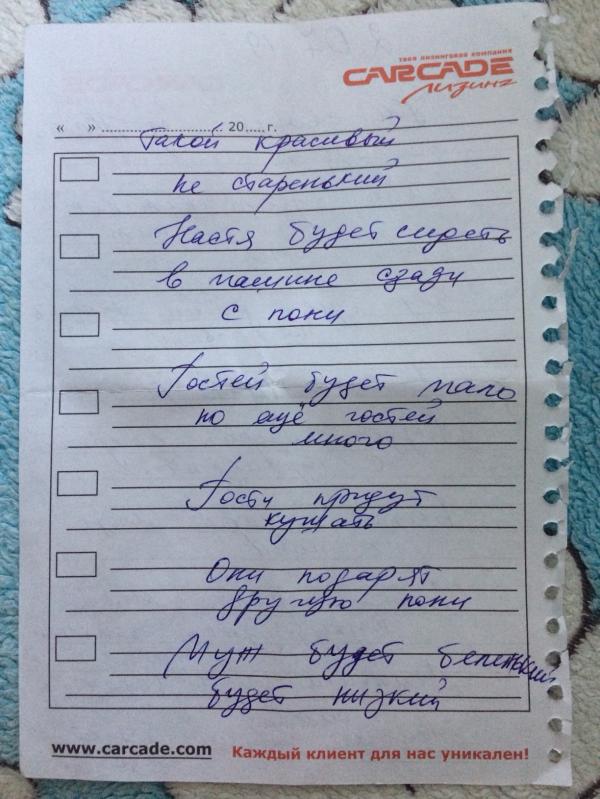 твоя лизинговая компания
CARCADE
лизинг
« » .............................. 20..... г.
Такой красивый
не старенький
Настя будет сидеть
в машине сзади
с пони
Гостей будет мало
но ещё гостей
много
Гости придут
кушать
Они подарят
другую пони
Муж будет беленький
будет низкий
www.carcade.com Каждый клиент для нас уникален!